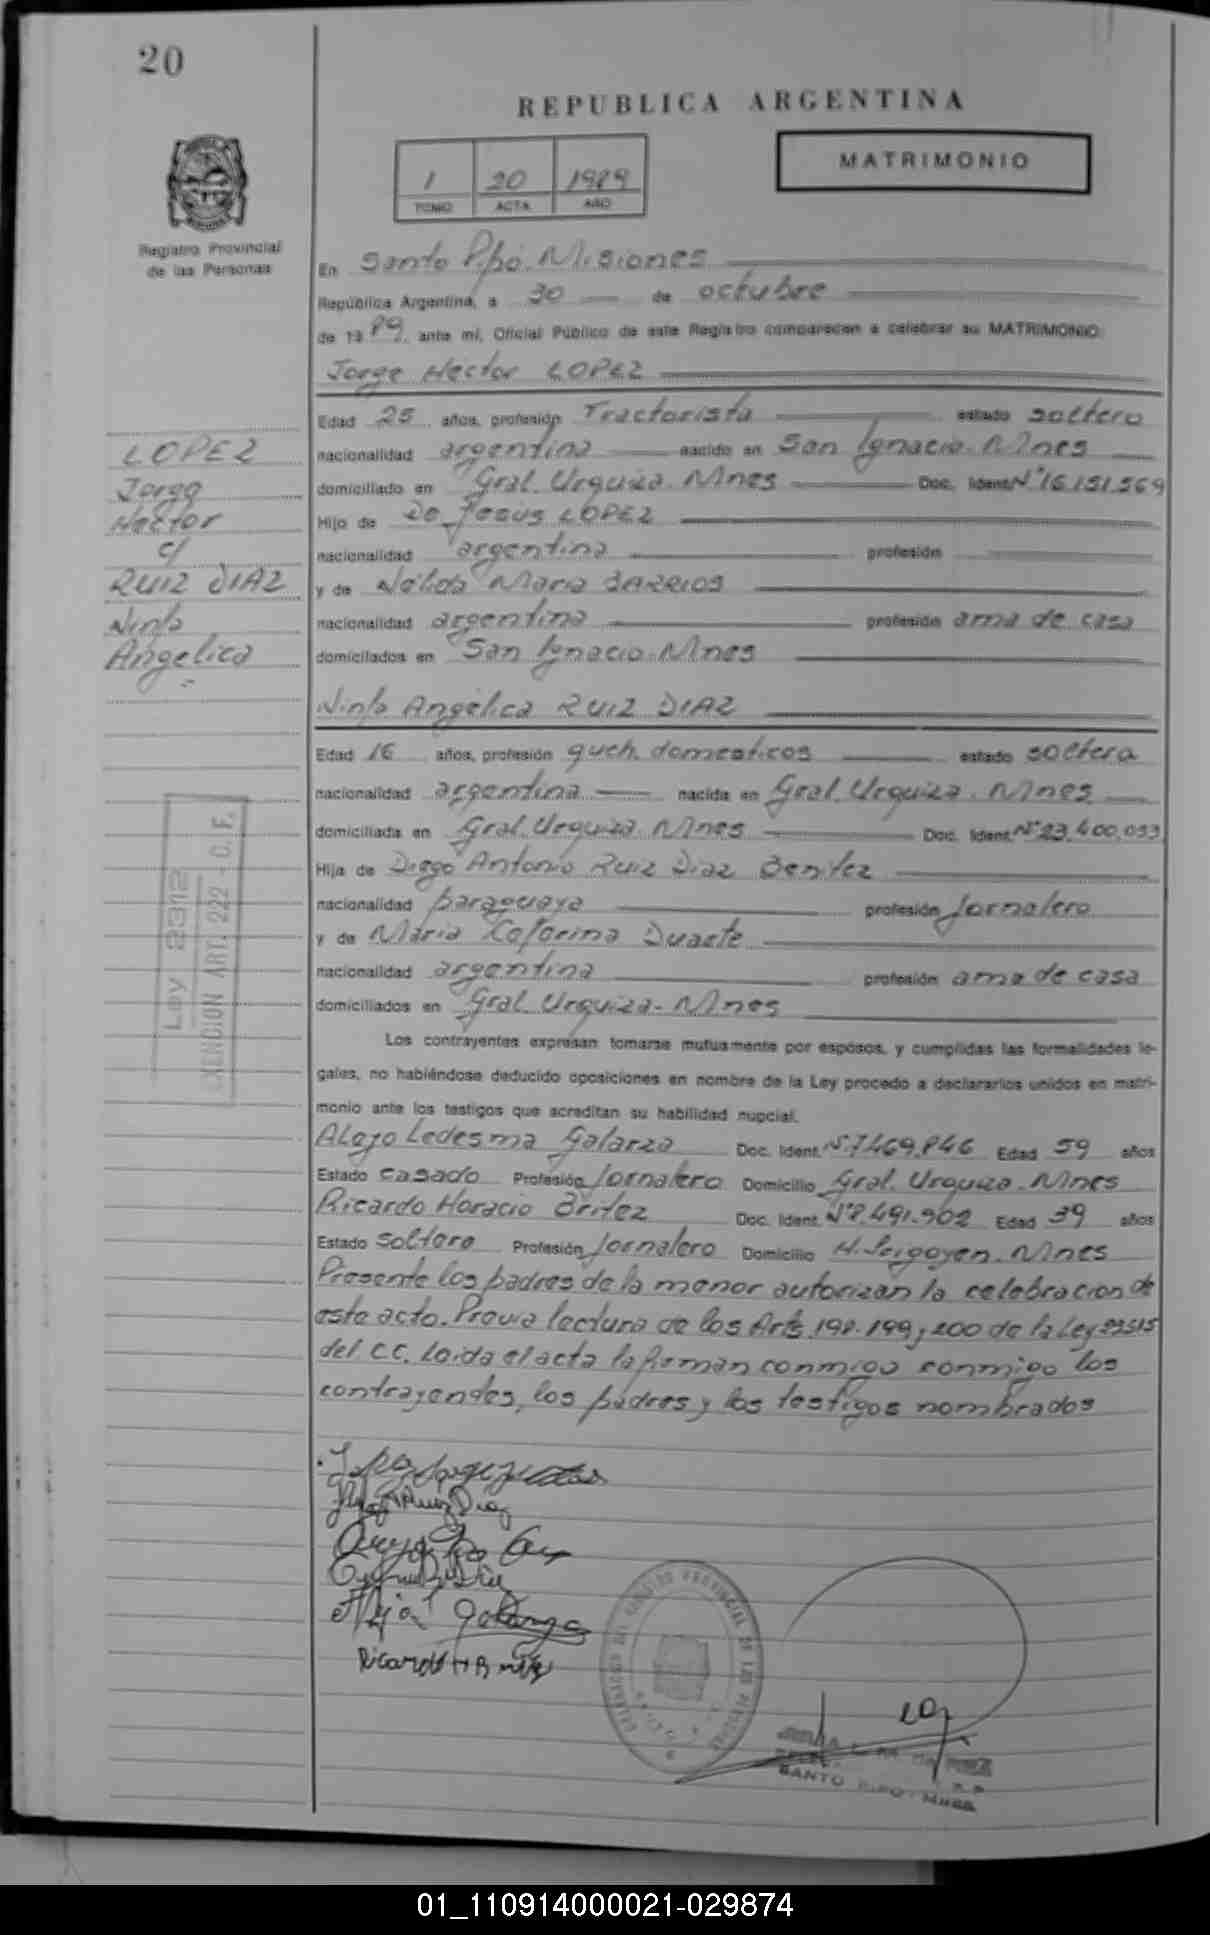 20
REPUBLICA ARGENTINA
MATRIMONIO
1 20 1989
TOMO ACTA AÑO
Registro Provincial
de las Personas
En Santo Pipó. Misiones
República Argentina, a 30 de octubre
de 19 89, ante mí, Oficial Público de este Registro comparecen a celebrar su MATRIMONIO:
Jorge Hector LOPEZ
Edad 25 años, profesión Tractorista estado soltero
nacionalidad argentina nacido en San Ignacio. Mnes
domiciliado en Gral. Urquiza. Mnes Doc. Ident. Nº 16.151.569
Hijo de De Jesus LOPEZ
nacionalidad argentina profesión
y de Nélida Maria BARRIOS
nacionalidad argentina profesión ama de casa
domiciliados en San Ignacio. Mnes
LOPEZ
Jorge
Hector
c/
RUIZ DIAZ
Ninfa
Angélica
Ninfa Angélica RUIZ DIAZ
Edad 16 años, profesión queh. domesticos estado soltera
nacionalidad argentina nacida en Gral. Urquiza. Mnes
domiciliada en Gral. Urquiza. Mnes Doc. Ident. Nº 23.400.033
Hija de Diego Antonio Ruiz Diaz Benitez
nacionalidad paraguaya profesión Jornalero
y de Maria Ceferina Duarte
nacionalidad argentina profesión ama de casa
domiciliados en Gral. Urquiza. Mnes
Ley 2312
EXENCION ART. 222 - C. F.
Los contrayentes expresan tomarse mutuamente por esposos, y cumplidas las formalidades le-
gales, no habiéndose deducido oposiciones en nombre de la Ley procedo a declararlos unidos en matri-
monio ante los testigos que acreditan su habilidad nupcial.
Alejo Ledesma Galarza Doc. Ident. Nº 7.469.846 Edad 59 años
Estado casado Profesión Jornalero Domicilio Gral. Urquiza. Mnes
Ricardo Horacio Britez Doc. Ident. Nº 8.491.902 Edad 39 años
Estado soltero Profesión Jornalero Domicilio H. Irigoyen. Mnes
Presente los padres de la menor autorizan la celebracion de
este acto. Previa lectura de los Arts. 198. 199 y 200 de la Ley 23515
del C.C. Leida el acta la firman conmigo conmigo los
contrayentes, los padres y los testigos nombrados
Ruiz Diaz
Galarza
Ricardo H Britez
SANTO PIPO - Mnes.
01_110914000021-029874